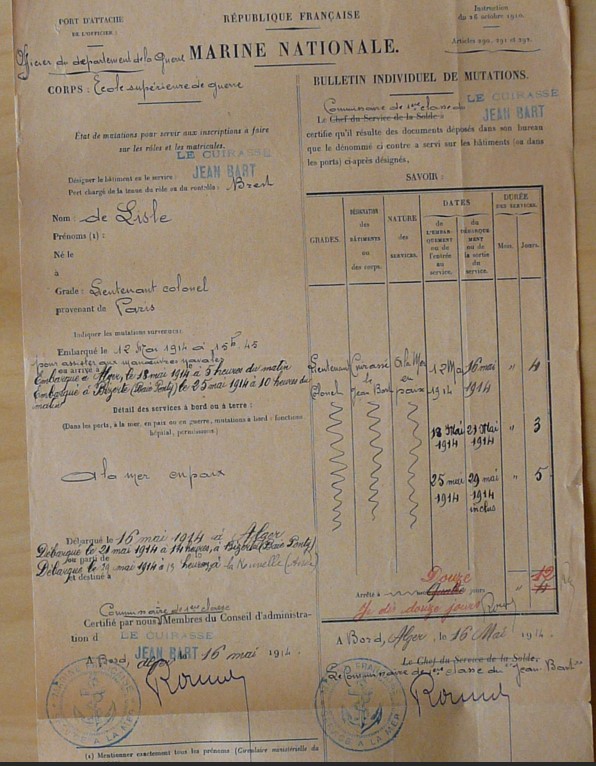 PORT D'ATTACHE
DE L'OFFICIER
Officier du département de la Guerre
CORPS : Ecole supérieure de guerre
RÉPUBLIQUE FRANÇAISE
MARINE NATIONALE.
Instruction
du 18 octobre 1910.
Articles 290, 291 et 292.
État de mutations pour servir aux inscriptions à faire
sur les rôles et les matricules.
LE CUIRASSE
JEAN BART
Désigner le bâtiment ou le service :
Port chargé de la tenue du rôle ou du contrôle : Brest
Nom : de Lisle
Prénoms (1) :
Né le
à
Grade : Lieutenant colonel
provenant de Paris
Indiquer les mutations survenues :
Embarqué le 12 Mai 1914 à 15h. 45
pour assister aux manœuvres navales
ou arrivé à
Embarqué à Alger, le 18 mai 1914 à 5 heures du matin
Embarqué à Bizerte (Baie Ponty) le 25 mai 1914 à 10 heures du
matin
Détail des services à bord ou à terre :
(Dans les ports, à la mer, en paix ou en guerre, mutations à bord : fonctions,
hôpital, permissions.)
A la mer en paix
Débarqué le 16 mai 1914 à Alger
Débarqué le 21 mai 1914 à 14 heures, à Bizerte (Baie Ponty)
ou parti de
Débarqué le 29 mai 1914 à heures, à la Nouvelle
et destiné à
Commissaire de 1ère classe
Certifié par nous Membres du Conseil d'administra-
tion d
LE CUIRASSE
JEAN BART
A Bord, 16 mai 1914
(1) Mentionner exactement tous les prénoms (Circulaire ministérielle du
BULLETIN INDIVIDUEL DE MUTATIONS.
Commissaire de 1ère classe du
LE CUIRASSE
JEAN BART
Le Chef du Service de la Solde à
certifie qu'il résulte des documents déposés dans son bureau
que le dénommé ci contre a servi sur les bâtiments (ou dans
les ports) ci-après désignés,
SAVOIR :
GRADES.
DÉSIGNATION
des
BÂTIMENTS
ou
des corps.
NATURE
des
SERVICES.
DATES
de
L'EMBAR-
QUEMENT
ou de
l'entrée
au
service.
du
DÉBARQUE-
MENT
ou de
la sortie
du
service.
DURÉE
DES SERVICES.
Mois.
Jours.
Lieutenant Cuirassé A la Mer 12 Mai 16 mai " 4
Colonel le Jean Bart en paix 1914 1914
18 Mai 21 Mai " 3
1914 1914
25 mai 29 mai " 5
1914 1914
inclus
Douze " 12
Arrêté à Quatre jours " 4
Je dis douze jours
A Bord, Alger, le 16 Mai 1914.
Le Chef du Service de la Solde,
Le Commissaire de 1ère classe du Jean Bart